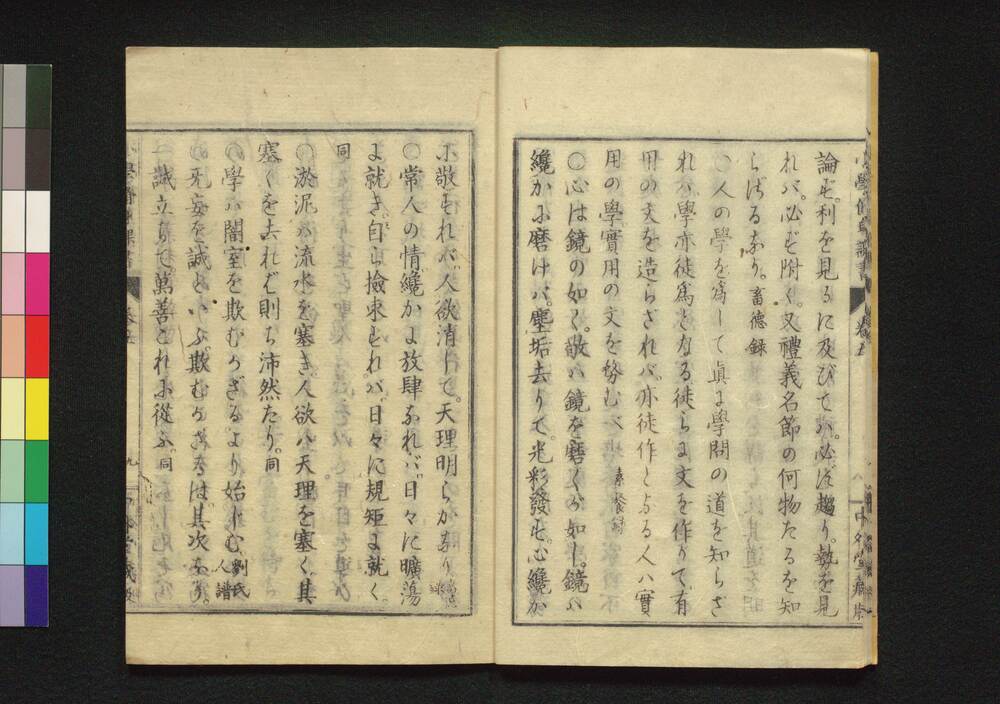 論も。利を見るに及びてハ。必ず趨り。勢を見
れバ。必ず附く。又禮義名節の何物たるを知
らざるなり。畜德錄
〇人の學を爲して眞に學問の道を知らざ
れハ學亦徒爲となる徒らに文を作りて。有
用の文を造らざれバ。亦徒作となる人ハ實
用の學實用の文を務むべし
〇心は鏡の如く。敬ハ鏡を磨くが如し。鏡ハ
纔かに磨けバ。塵垢去りて。光彩發も。心纔か
に敬もれバ。人欲消して。天理明らかなり
〇常人の情。纔かに放肆なれバ。日々に曠蕩
に就き。自ら撿束もれバ。日々に規矩に就く。
同
〇淤泥ハ流水を塞ぎ。人欲ハ天理を塞く。其
塞くを去れば則ち沛然たり。同
〇學ハ闇室を欺むかざるより始まむ。劉氏人譜
〇无妄を誠といふ。欺むかざるは。其次なり。
一誠立ちて。萬善これに從ふ。同